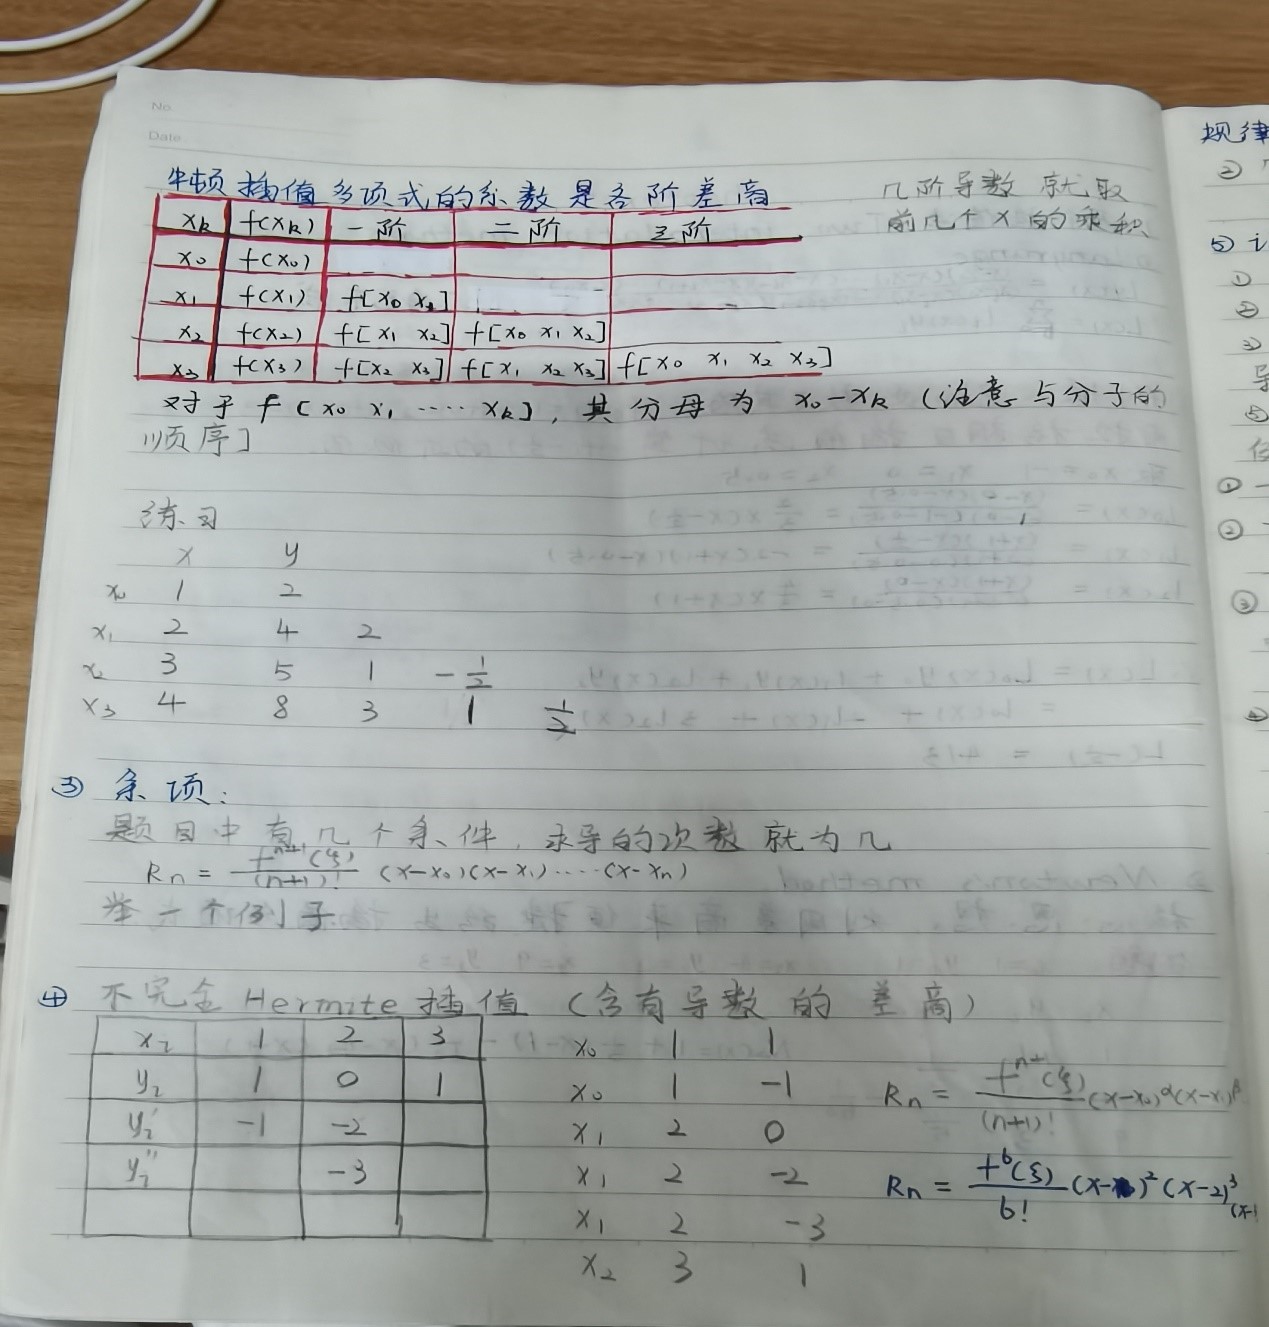 No.
Date
牛顿插值多项式的系数是各阶差商
几阶导数就取
前几个x的乘积
xk f(xk) 一阶 二阶 三阶
x0 f(x0)
x1 f(x1) f[x0 x1]
x2 f(x2) f[x1 x2] f[x0 x1 x2]
x3 f(x3) f[x2 x3] f[x1 x2 x3] f[x0 x1 x2 x3]
对于 f[x0 x1 ····· xk], 其分母为 x0-xk (注意与分子的
顺序]
练习
x y
x0 1 2
x1 2 4 2
x2 3 5 1 -1/2
x3 4 8 3 1 1/2
③ 余项:
题目中有几个条件, 求导的次数就为几
Rn = f^{n+1}(ξ)/(n+1)! (x-x0)(x-x1)····(x-xn)
举一个例子
④ 不完全Hermite插值 (含有导数的差商)
xi 1 2 3
yi 1 0 1
yi' -1 -2
yi'' -3
x0 1 1
x0 1 -1
x1 2 0
x1 2 -2
x1 2 -3
x2 3 1
Rn = f^{n+1}(ξ)/(n+1)! (x-x0)^α(x-x1)^β
Rn = f^6(ξ)/6! (x- )²(x-2)³
规律
②
⑤
①
②
③
⑤
①
②
③
④